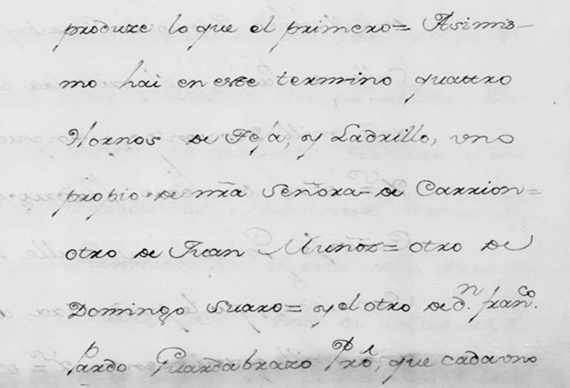 produze lo que el primero= Asimis-
mo hai en este termino quattro
Hornos de Teja, y Ladrillo, uno
propio de nrã Señora= de Carrion=
otro de Juan Muñoz= otro de
Domingo Suaro= y el otro de dⁿ. franᶜᵒ.
Pardo Guardabrazo Pro͂, que cada uno